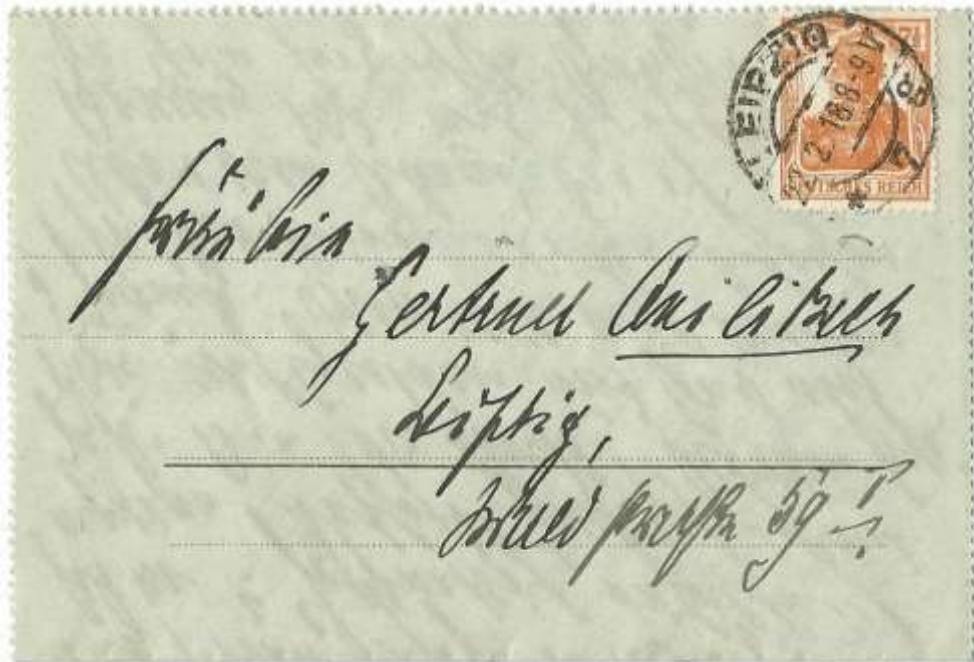 LEIPZIG
2.18.8-9V
7½
DEUTSCHES REICH
Fräulein
Gertrud
Leipzig,
Waldstraße 59 I